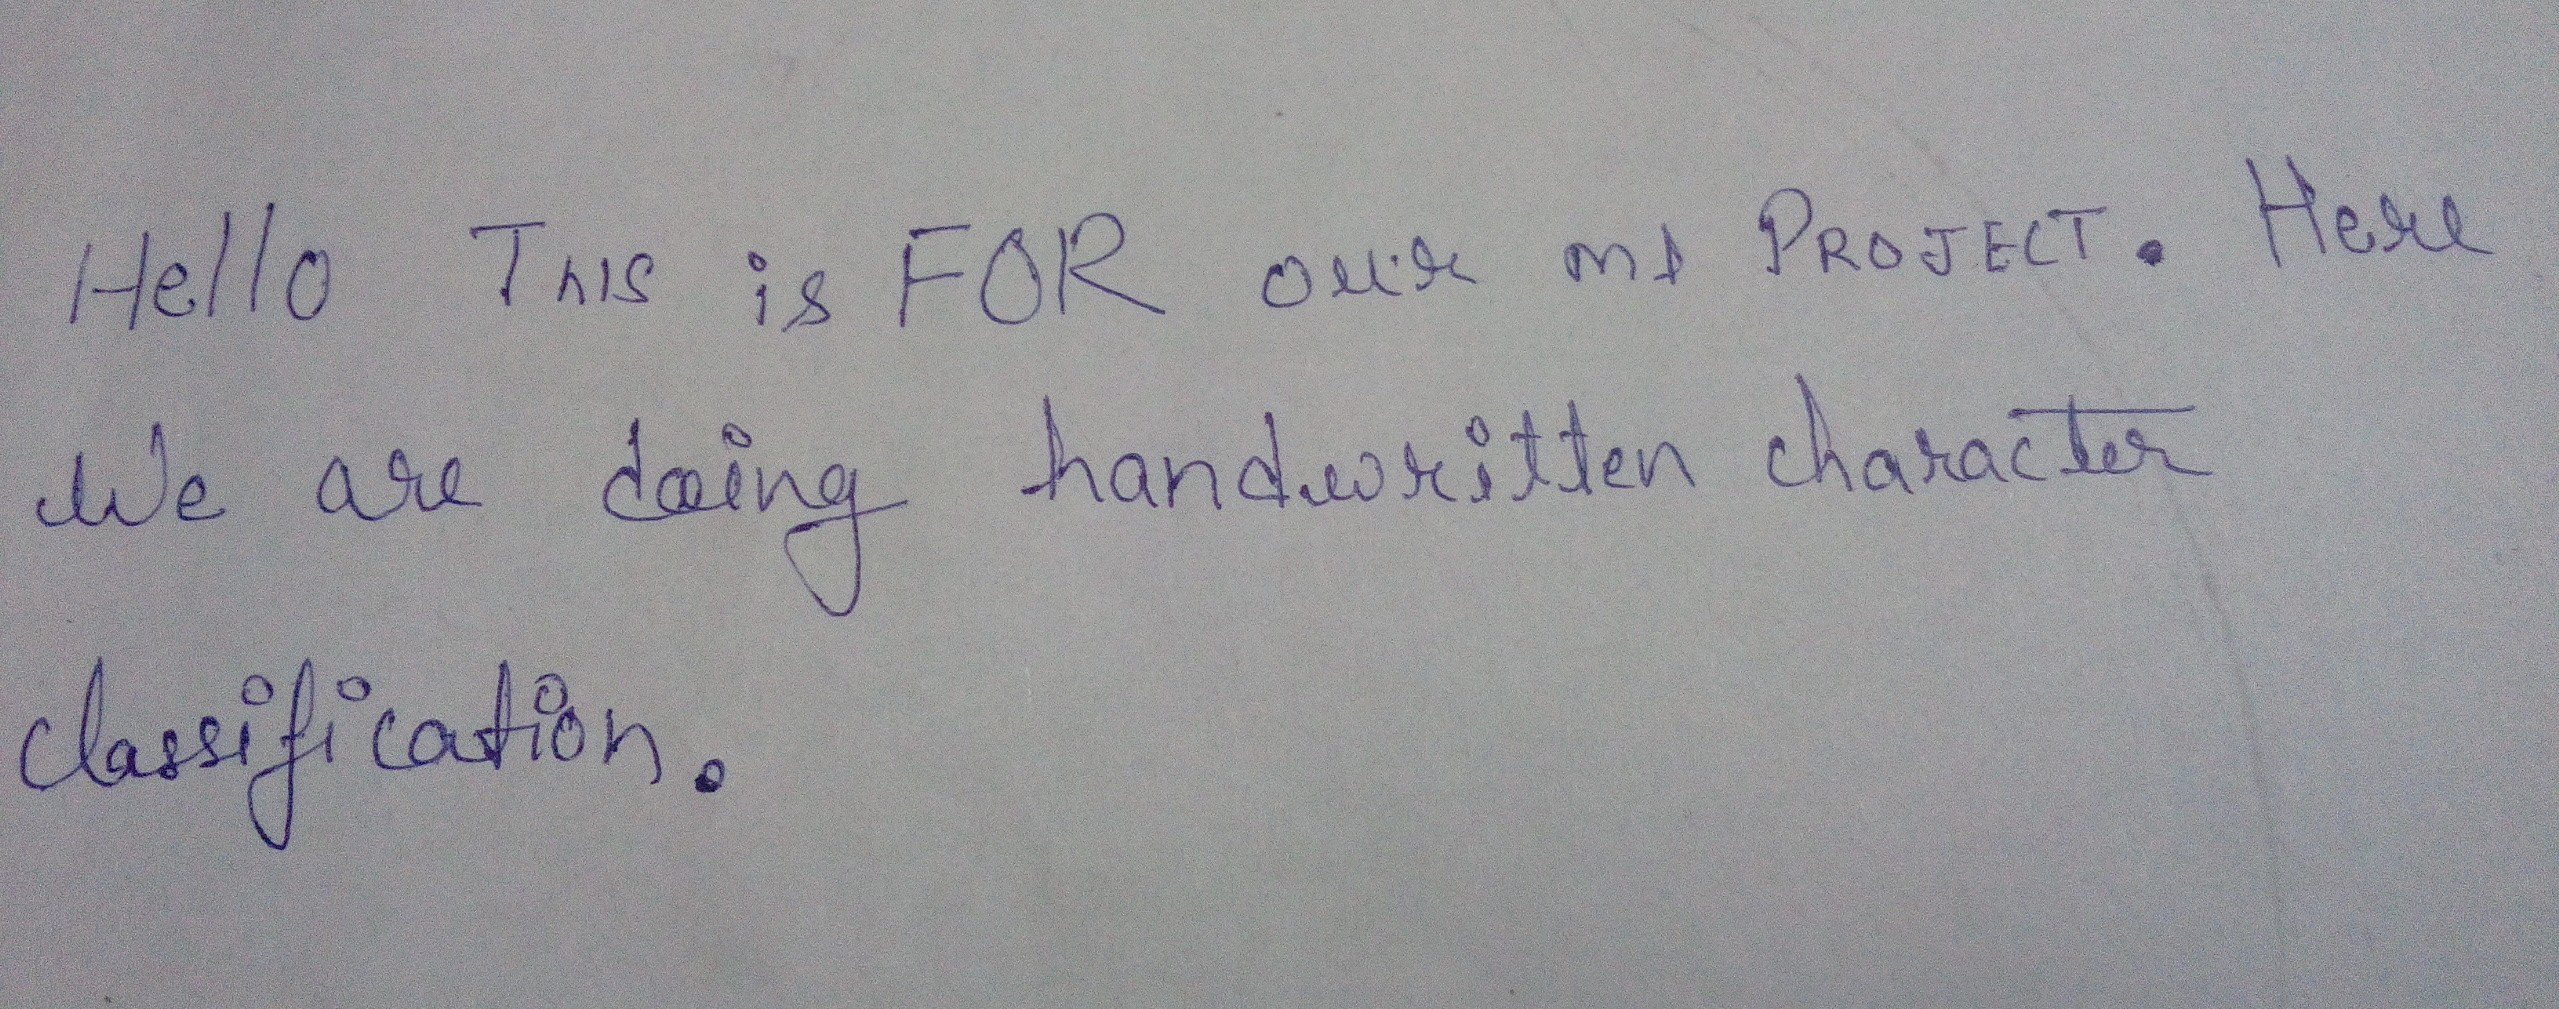 Hello This is FOR our ml PROJECT. Here
we are doing handwritten character
classification.